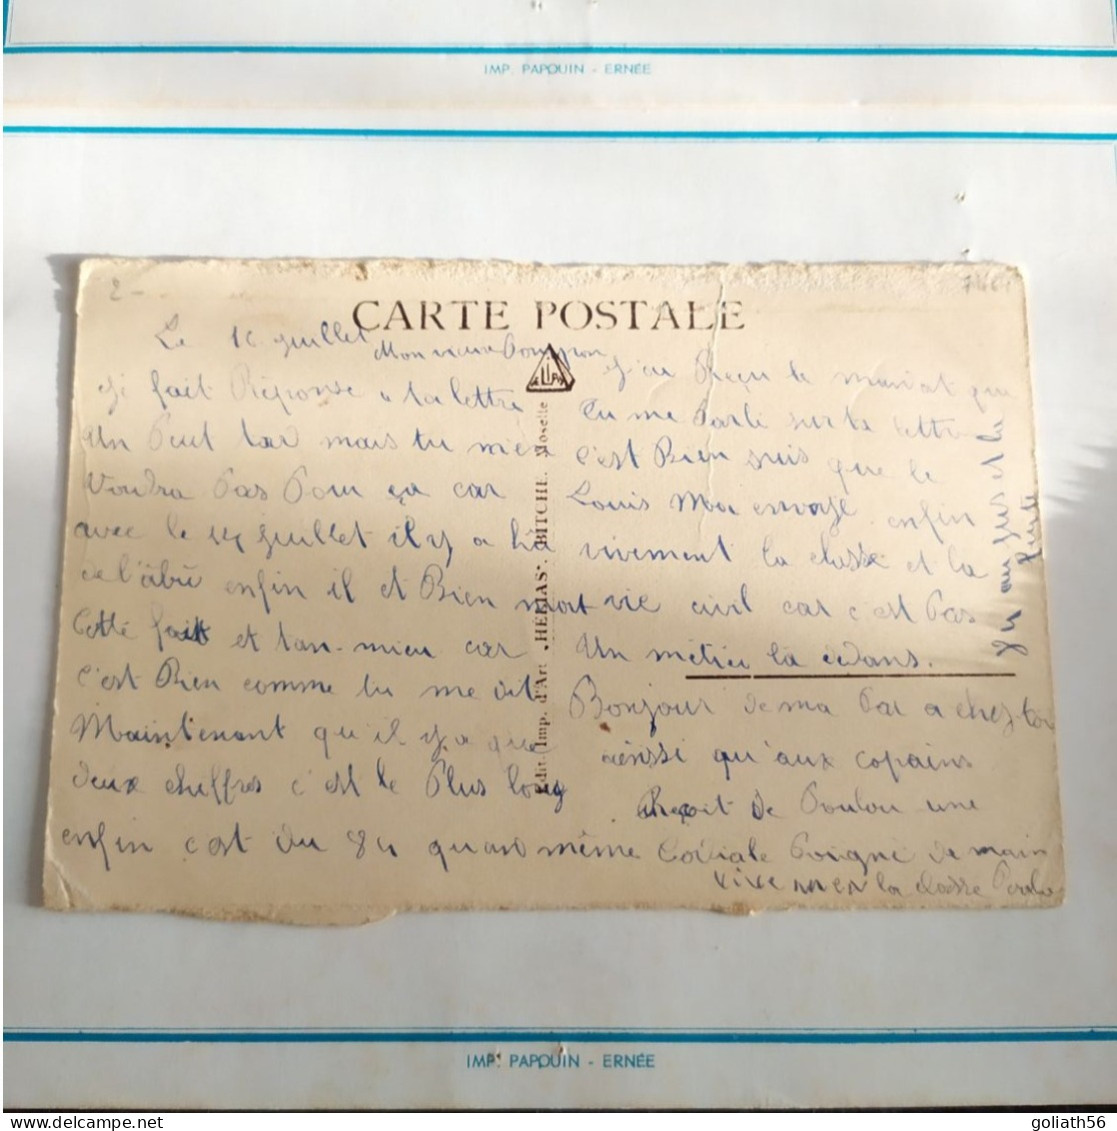 IMP. PAPOUIN - ERNÉE
2-
CARTE POSTALE
Le 16 juillet
Mon vieux
Ji fait Réponse a ta lettre
Un Peut tar mais tu men
Voudra Pas Pour ça car
avec le 14 juillet il y a hà
de l'âbû enfin il et Bien mort
Cette fait et tan-mieu car
c'est Bien comme tu me dit
Maintenant qu'il y a que
deux chiffres c'est le Plus long
enfin c'est du 84 quan même
J'ai Reçu le mandat que
tu me Parle sur ta lettre
c'est Bien suis que le
Louis Ma envoyé enfin
vivement la classe et la
vie civil car c'est Pas
Un métier la dedans.
Bonjour de ma Par a chez-toi
ainssi qu'aux copains
Reçoit de Poulou une
Cordiale Poigné de main
vivemen la classe
et la
Edit. Imp. d'Art "HELIAS", BITCHE. Moselle
IMP. PAPOUIN - ERNÉE
goliath56